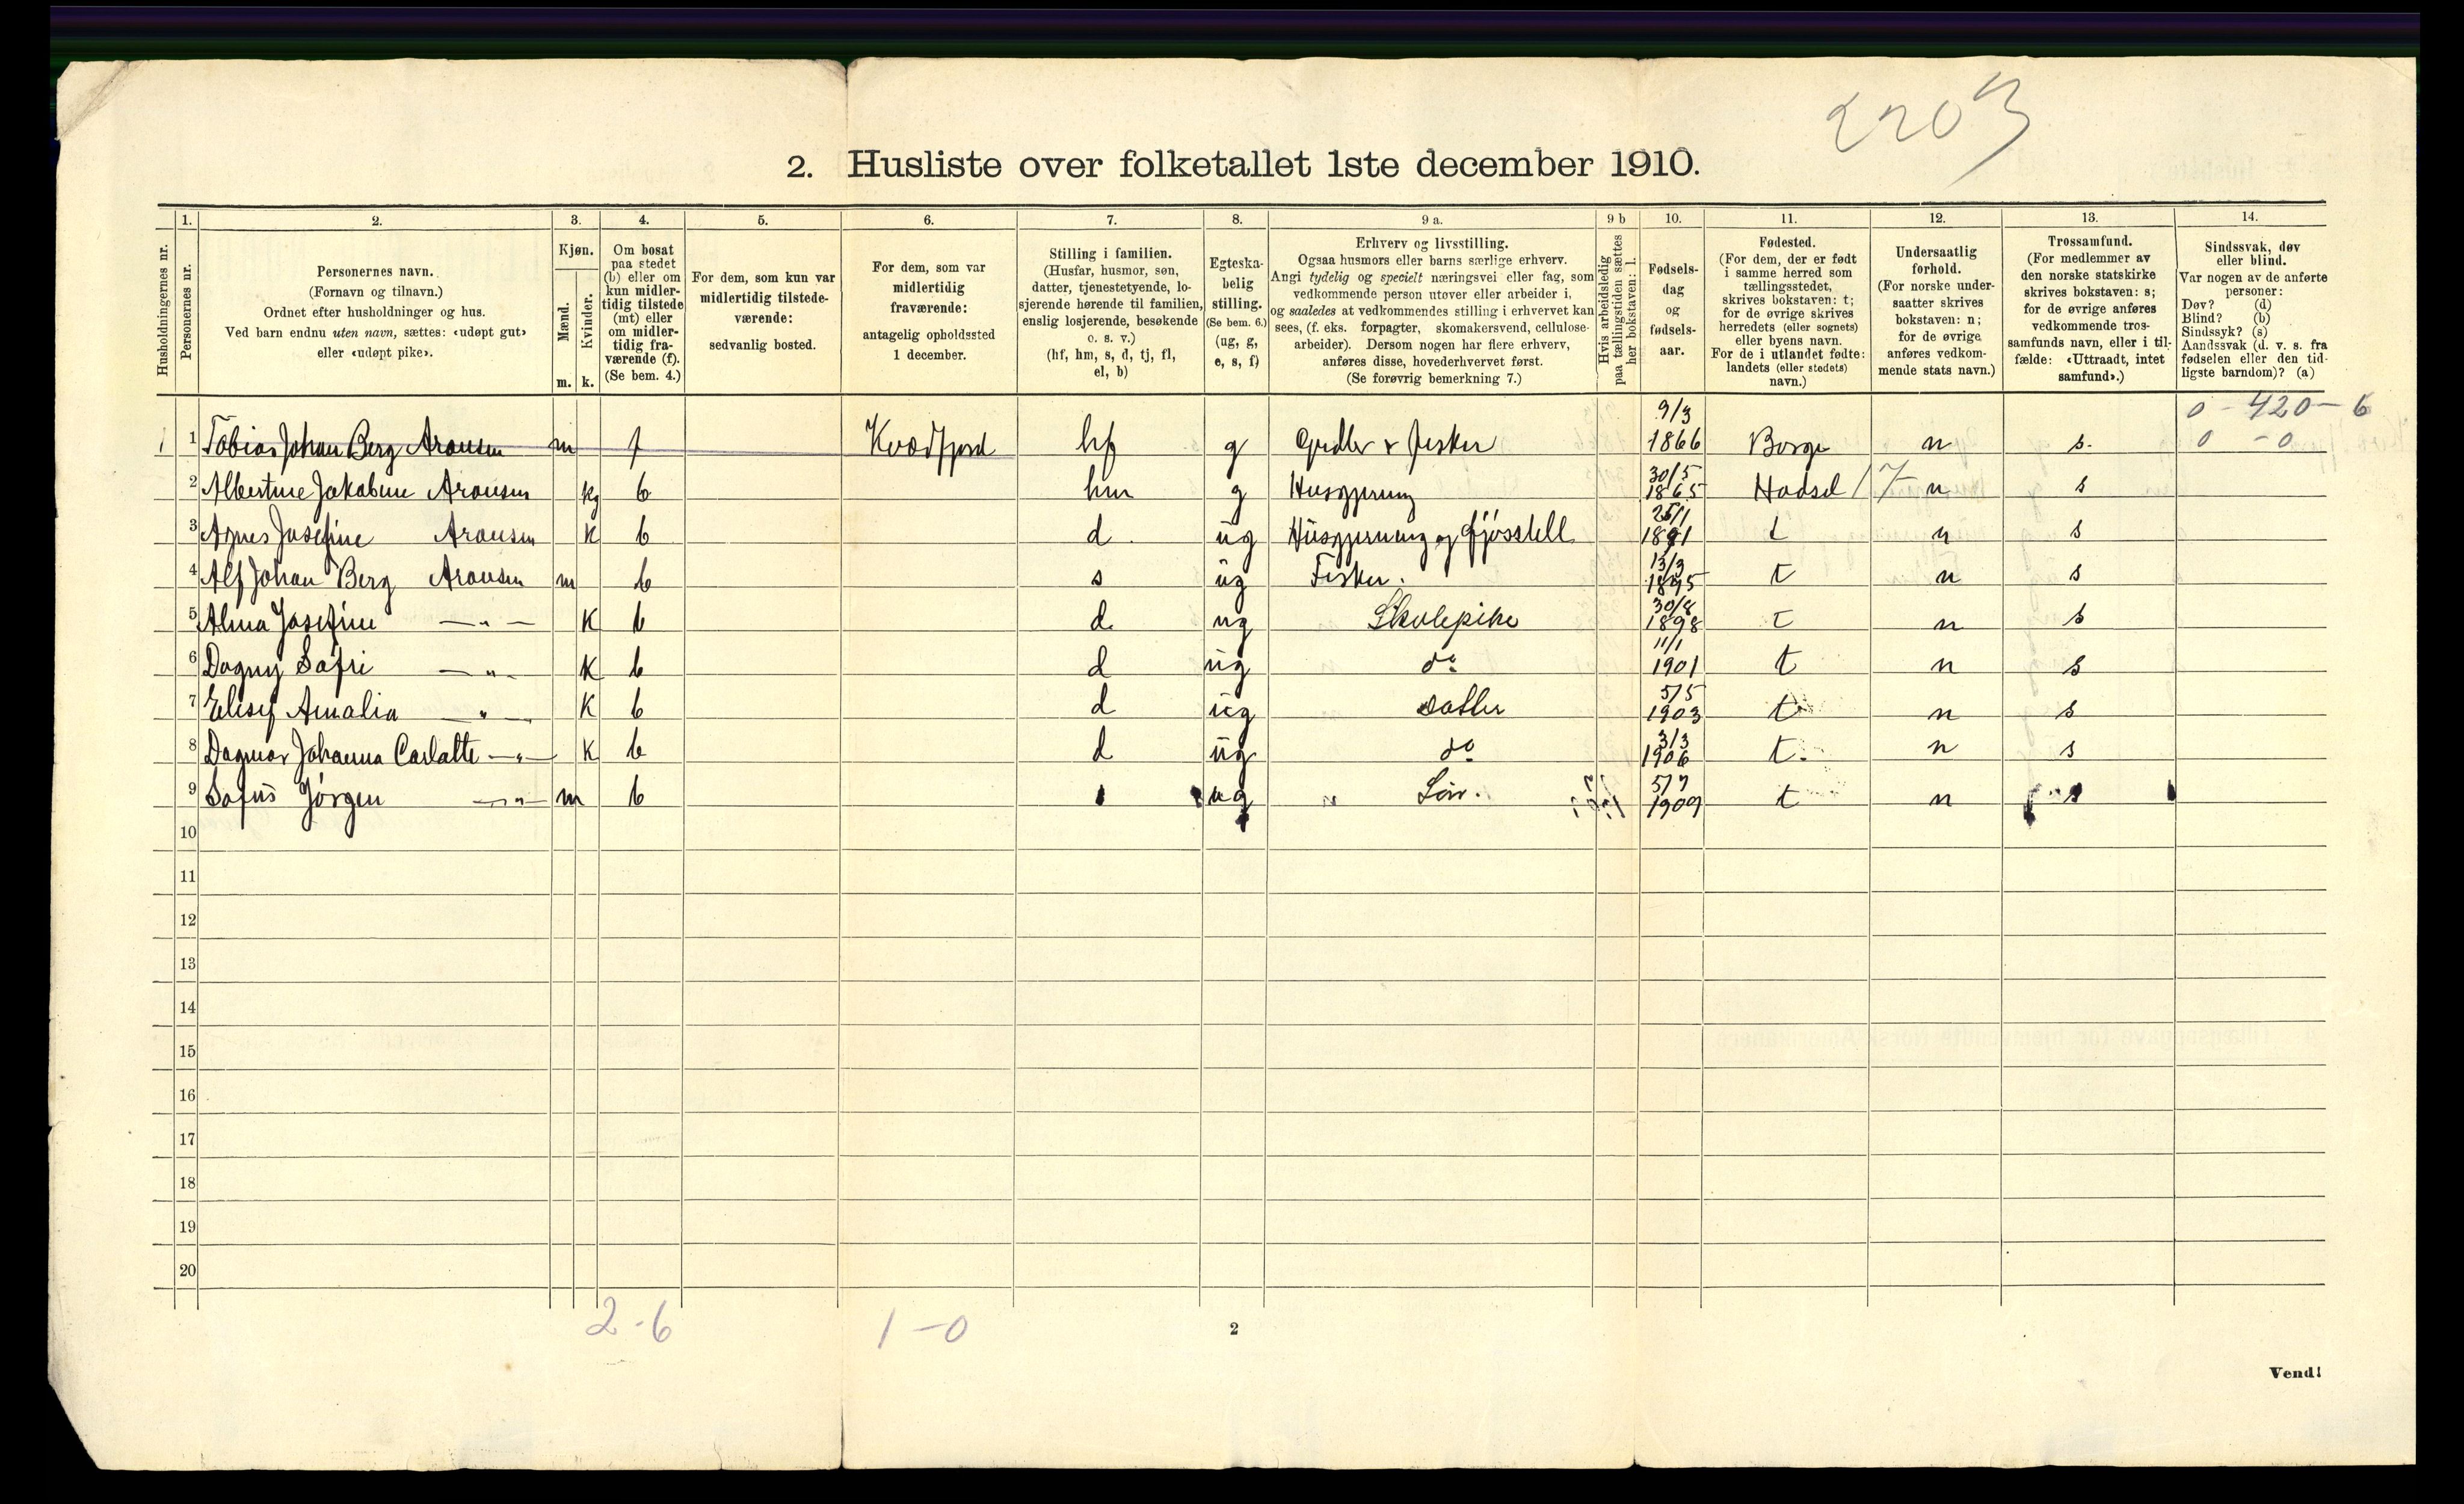 2203
2. Husliste over folketallet 1ste december 1910.
Husholdningernes nr.
1. Personernes nr.
2. Personernes navn. (Fornavn og tilnavn.) Ordnet efter husholdninger og hus. Ved barn endnu uten navn, sættes: «udøpt gut» eller «udøpt pike».
3. Kjøn. Mænd. m. Kvinder. k.
4. Om bosat paa stedet (b) eller om kun midler-tidig tilstede (mt) eller om midler-tidig fra-værende (f). (Se bem. 4.)
5. For dem, som kun var midlertidig tilstede-værende: sedvanlig bosted.
6. For dem, som var midlertidig fraværende: antagelig opholdssted 1 december.
7. Stilling i familien. (Husfar, husmor, søn, datter, tjenestetyende, lo-sjerende hørende til familien, enslig losjerende, besøkende o. s. v.) (hf, hm, s, d, tj, fl, el, b)
8. Egteska-belig stilling. (Se bem. 6.) (ug, g, e, s, f)
9 a. Erhverv og livsstilling. Ogsaa husmors eller barns særlige erhverv. Angi tydelig og specielt næringsvei eller fag, som vedkommende person utøver eller arbeider i, og saaledes at vedkommendes stilling i erhvervet kan sees, (f. eks. forpagter, skomakersvend, cellulose-arbeider). Dersom nogen har flere erhverv, anføres disse, hovederhvervet først. (Se forøvrig bemerkning 7.)
9 b Hvis arbeidsledig paa tællingstiden sættes her bokstaven: l.
10. Fødsels-dag og fødsels-aar.
11. Fødested. (For dem, der er født i samme herred som tællingsstedet, skrives bokstaven: t; for de øvrige skrives herredets (eller sognets) eller byens navn. For de i utlandet fødte: landets (eller stedets) navn.)
12. Undersaatlig forhold. (For norske under-saatter skrives bokstaven: n; for de øvrige anføres vedkom-mende stats navn.)
13. Trossamfund. (For medlemmer av den norske statskirke skrives bokstaven: s; for de øvrige anføres vedkommende tros-samfunds navn, eller i til-fælde: «Uttraadt, intet samfund».)
14. Sindssvak, døv eller blind. Var nogen av de anførte personer: Døv? (d) Blind? (b) Sindssyk? (s) Aandssvak (d. v. s. fra fødselen eller den tid-ligste barndom)? (a)
0 - 420 - 6
1 1 Tobias Johan Berg Aronsen m f Kvædfjord hf g Gredler & fisker 9/3 1866 Borge n s. 0 - 0
2 Albertine Jakobine Aronsen k b hm g Husgjerning 30/5 1865 Hadsel n s
3 Agnes Josefine Aronsen K b d. ug Husgjerning og fjøsstell 25/1 1891 t n s
4 Alf Johan Berg Aronsen m b s ug Fisker. 13/3 1895 t n s
5 Alma Josefine —"— K b d ug Skolepike 30/8 1898 t n s
6 Dagny Safri —"— K b d ug do 11/1 1901 t n s
7 Elisif Amalia —"— K b d ug datter 5/5 1903 t n s
8 Dagmar Johanna Carlatte —"— K b d ug do 3/3 1906 t. n s
9 Sofus Jørgen —"— m b s ug Søn. 5/7 1909 t n s
10
11
12
13
14
15
16
17
18
19
20
2-6 1-0 2
Vend!